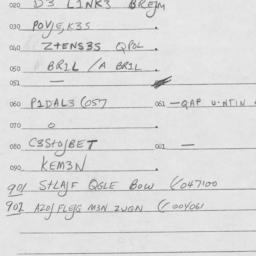 020 D3 L1NK3 BREJM
030 POVJE,K3S
040 Z+ENS3S QPOL
050 BR1L /A BR1L
051 —
060 P1DAL3 (057 061 —QAF U-NTIN
070 0
080 C3S+OJBET 081 —
090 KEM3N
901 S+LAJF QGLE BOW (/047100
902 AZOJ FLEJG M3N ZWGN (/00Y061